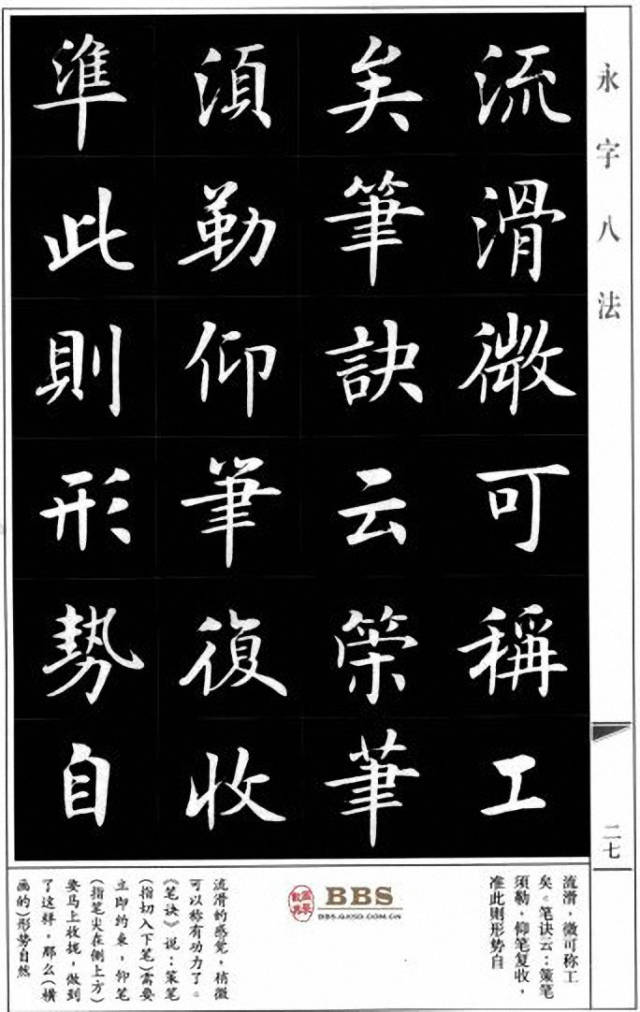 永字八法
流滑微可稱工
矣筆訣云策筆
須勒仰筆復收
準此則形勢自
二七
流滑，微可称工
矣。笔诀云：策笔
须勒，仰笔复收，
准此则形势自
BBS
BBS.GXSD.COM.CN
流滑的感觉，稍微
可以称有功力了。
《笔诀》说：策笔
(指切入下笔)需要
立即约束，仰笔
(指笔尖在侧上方)
要马上收拢，做到
了这样，那么(横
画的)形势自然